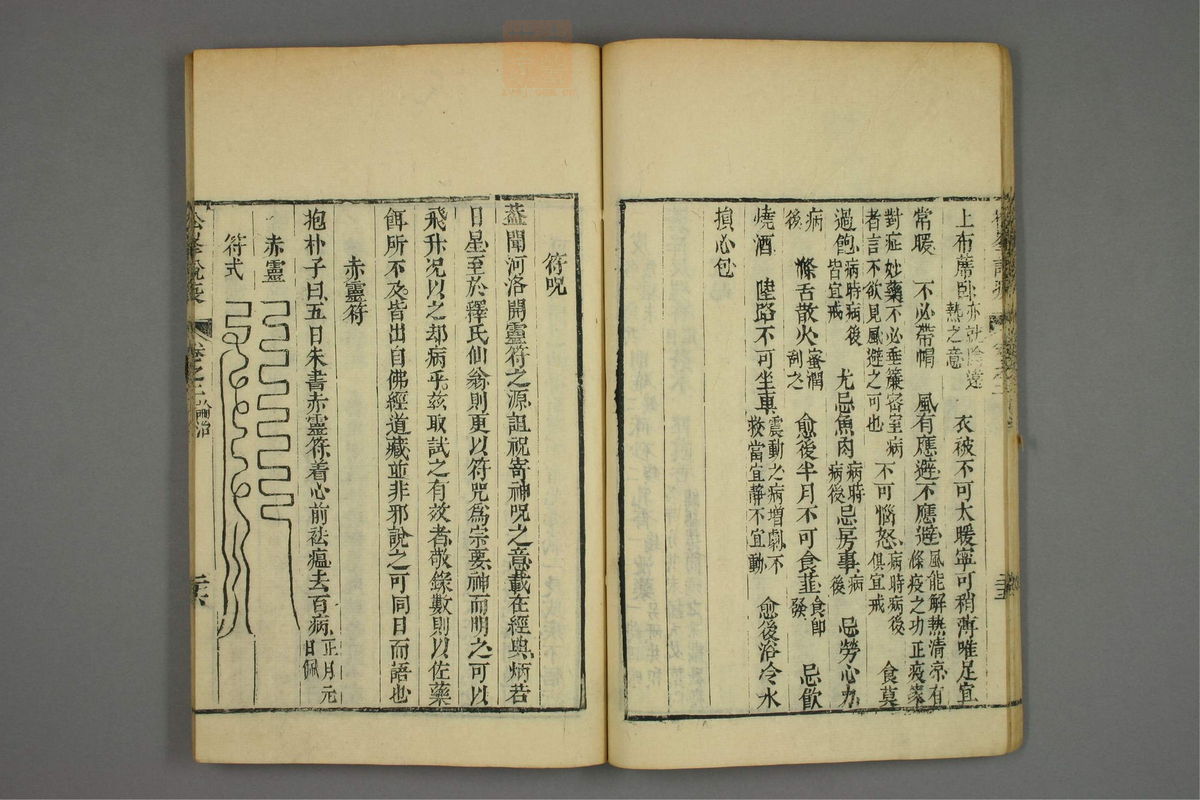 上布蓆臥亦就陰遠熱之意 衣被不可太暖寧可稍薄唯足宜
常暖 不必帶帽 風有應避不應避風能解熱清凉有滌疫之功正疫家
對症妙藥不必垂簾密室病者言不欲見風避之可也 不可惱怒病時病後俱宜戒 食莫
過飽病時病後皆宜戒 尤忌魚肉病時病後忌房事病後 忌勞心力
病後 滌舌散火蜜潤刮之 愈後半月不可食韮食即發 忌飲
燒酒 陸路不可坐車震動之病增劇不救當宜靜不宜動 愈後浴冷水
損心包
符呪
蓋聞河洛開靈符之源詛祝寄神呪之意載在經典炳若
日星至於釋氏仙翁則更以符咒爲宗要神而明之可以
飛升况以之却病乎兹取試之有效者敬錄數則以佐藥
餌所不及皆出自佛經道藏並非邪說之可同日而語也
赤靈符
抱朴子曰五日朱書赤靈符着心前祛瘟去百病正月元日佩
赤靈
符式
松峯說疫
卷之二
論治
二十六